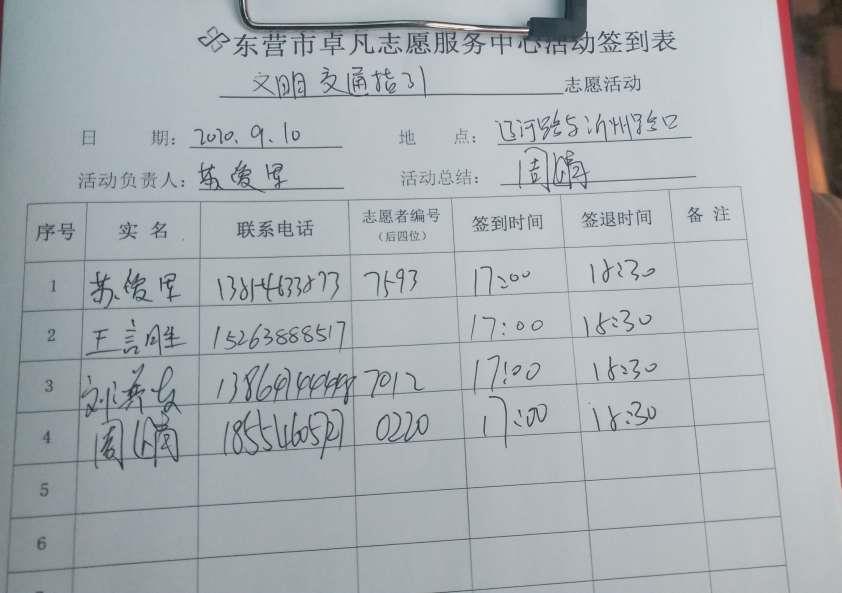 东营市卓凡志愿服务中心活动签到表
文明交通指引 志愿活动
日 期: 2020.9.10 地 点: 辽河路与沂州路口
活动负责人: 苏俊军 活动总结: 周婧
序号 实 名 联系电话 志愿者编号 (后四位) 签到时间 签退时间 备 注
1 苏俊军 7593 17:00 18:30
2 王言胜 15263888517 17:00 18:30
3 刘 7012 17:00 18:30
4 周 0220 17:00 18:30
5
6